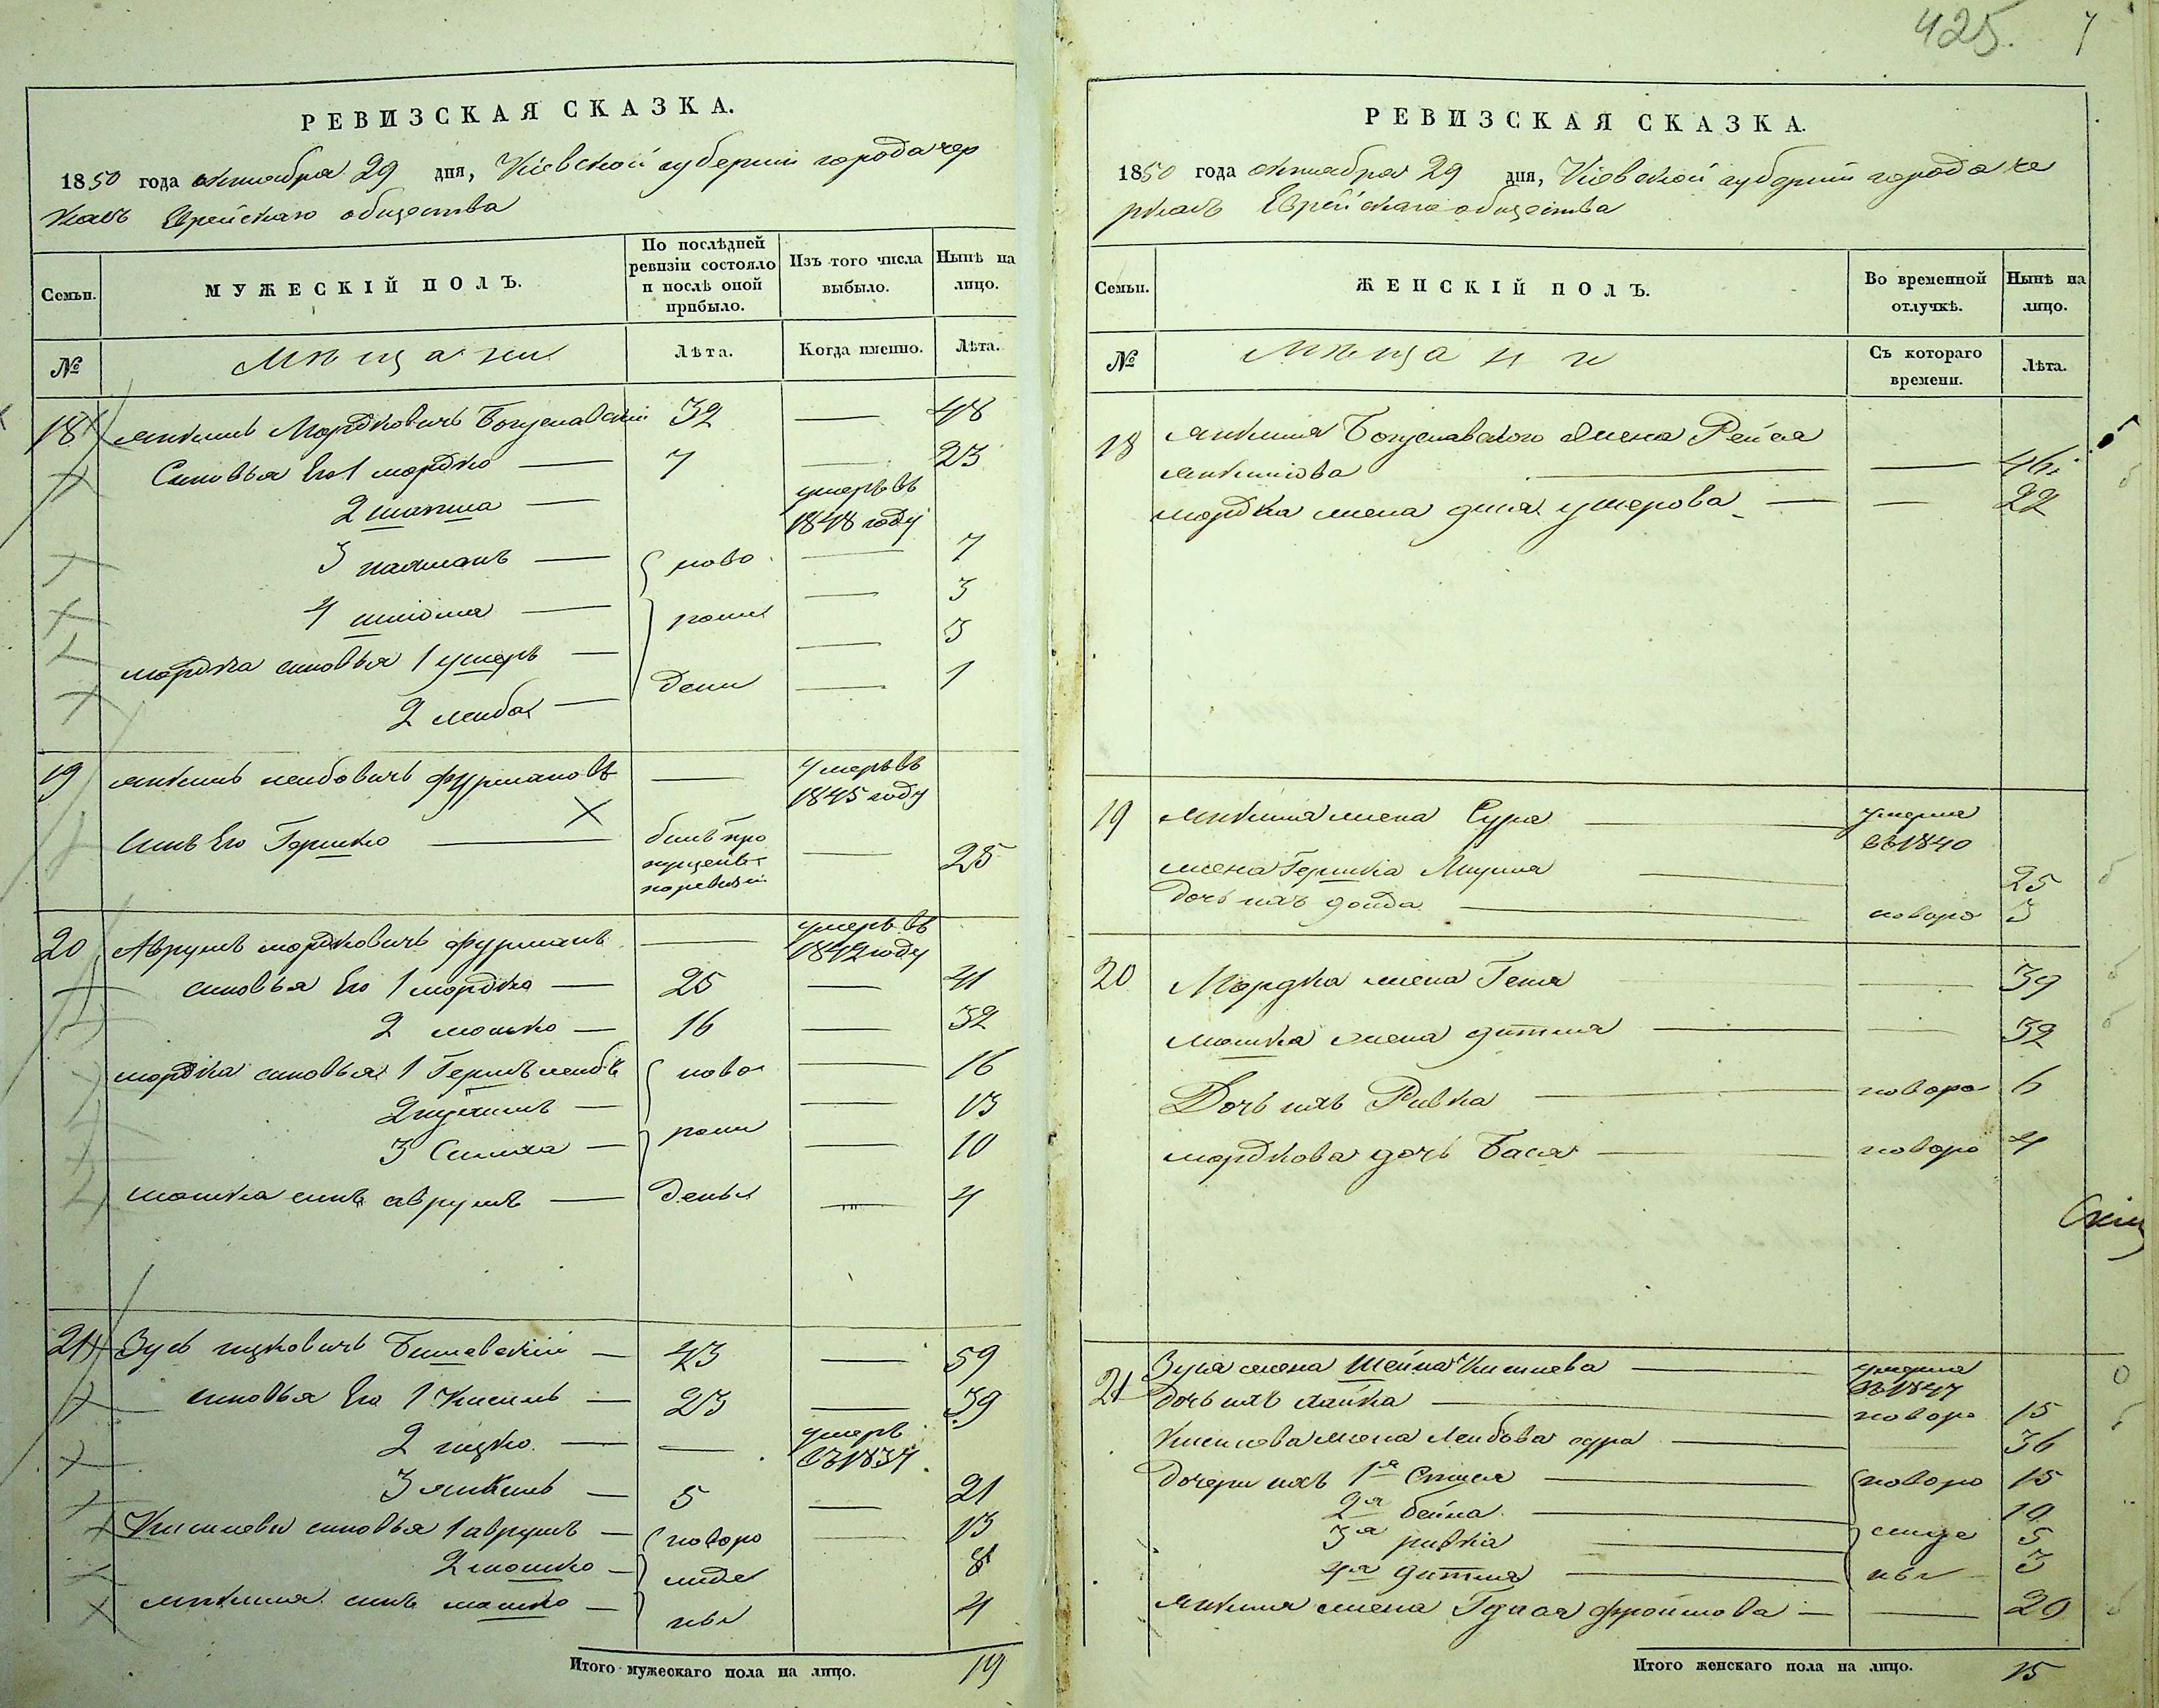 425.
РЕВИЗСКАЯ СКАЗКА.
1850 года октября 29 дня, Кіевской губерніи города чер
касъ Еврейскаго общества
Семьи.
МУЖЕСКІЙ ПОЛЪ.
По послѣдней
ревизіи состояло
и послѣ оной
прибыло.
Изъ того числа
выбыло.
Нынѣ на
лицо.
№
Мѣщани
Лѣта.
Когда именно.
Лѣта.
18 янкель Мордковичъ Богуславскій 32 — 48
Сыновья Его 1 мордко — 7 — 23
2 — умеръ въ
1848 году
3 — ново — 7
4 шліома — рож — 3
мордка сыновья 1 умеръ — — 3
2 лейба — дени — 1
19 янкель лейбовичъ фурмановъ — умеръ въ
1845 году
сынъ Его Гершко — былъ про
пущенъ
по ревизіи — 25
20 Аврумъ мордковичъ фурманъ — умеръ въ
1842 году
сыновья Его 1 мордко — 25 — 41
2 мошко — 16 — 32
мордка сыновья 1 Гершъ лейбъ ново — 16
2 — 13
3 Симха — рож — 10
мошка сынъ аврумъ — дены — 4
21 Зусь ицковичъ — 43 — 59
сыновья Его 1 Кисиль — 23 — 39
2 ицко — — умеръ
въ 1837
3 янкель — 5 — 21
Кисилевы сыновья 1 аврумъ — новоро — 13
2 мошко — жде 8
янкеля сынъ мошко — ны 4
Итого мужескаго пола на лицо. 19
РЕВИЗСКАЯ СКАЗКА.
1850 года октября 29 дня, Кіевской губерніи города че
ркасъ Еврейскаго общества
Семьи.
ЖЕНСКІЙ ПОЛЪ.
Во временной
отлучкѣ.
Нынѣ на
лицо.
№
Мѣщани
Съ котораго
времени.
Лѣта.
18 янкеля Богуславского жена Рейся
янкиліова — — 46
мордка жена дина умерова — — 22
19 янкеля жена Сура — умерла
въ 1840
жена Гершка Мирля — 25
дочь ихъ — новоро 3
20 Мордка жена Геня — 39
мошка жена дитля — — 32
Дочь ихъ Ривка — новоро 6
мордкова дочь Бася — новоро 4
21 Зуся жена Шейна Кисилева — умерла
въ 1847
дочь ихъ хайка — новоро 15
Кисилева жена Лейбова сура — 36
дочери ихъ 1я — новоро 15
2я бейла — 10
3я ривка — жде 5
4я дитля — ны 3
янкеля жена фроимова — — 20
Итого женскаго пола на лицо. 15